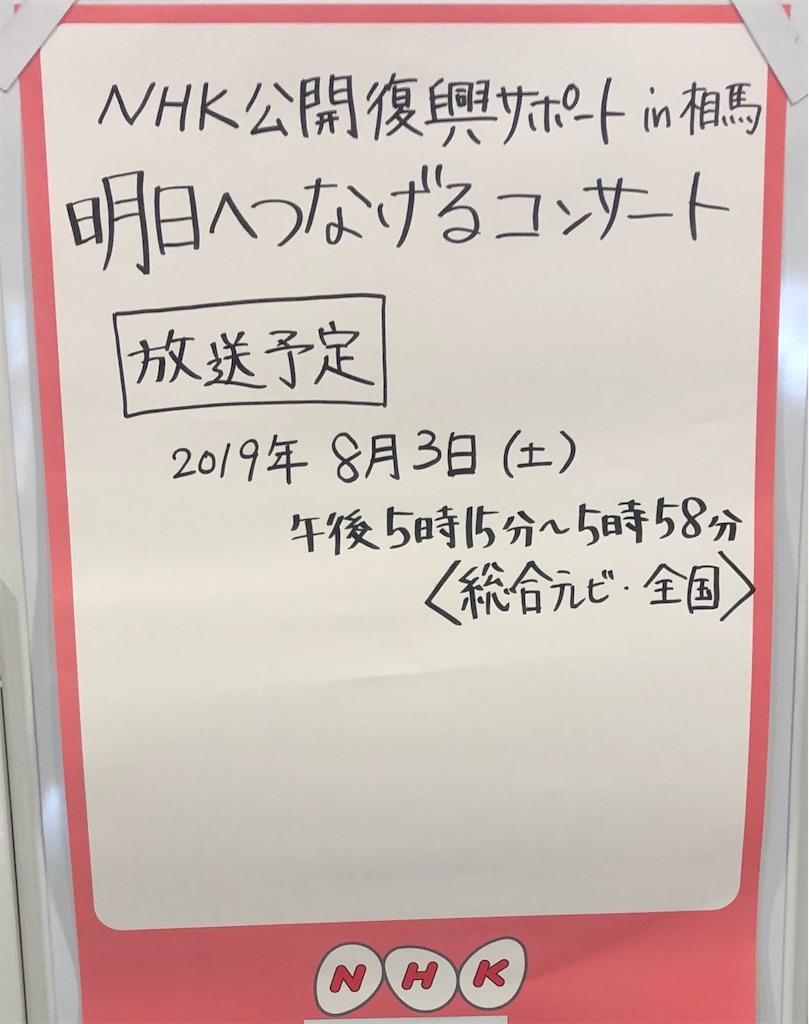 NHK公開復興サポート in 相馬
明日へつなげるコンサート
放送予定
2019年 8月3日(土)
午後5時15分～5時58分
〈総合テレビ・全国〉
NHK